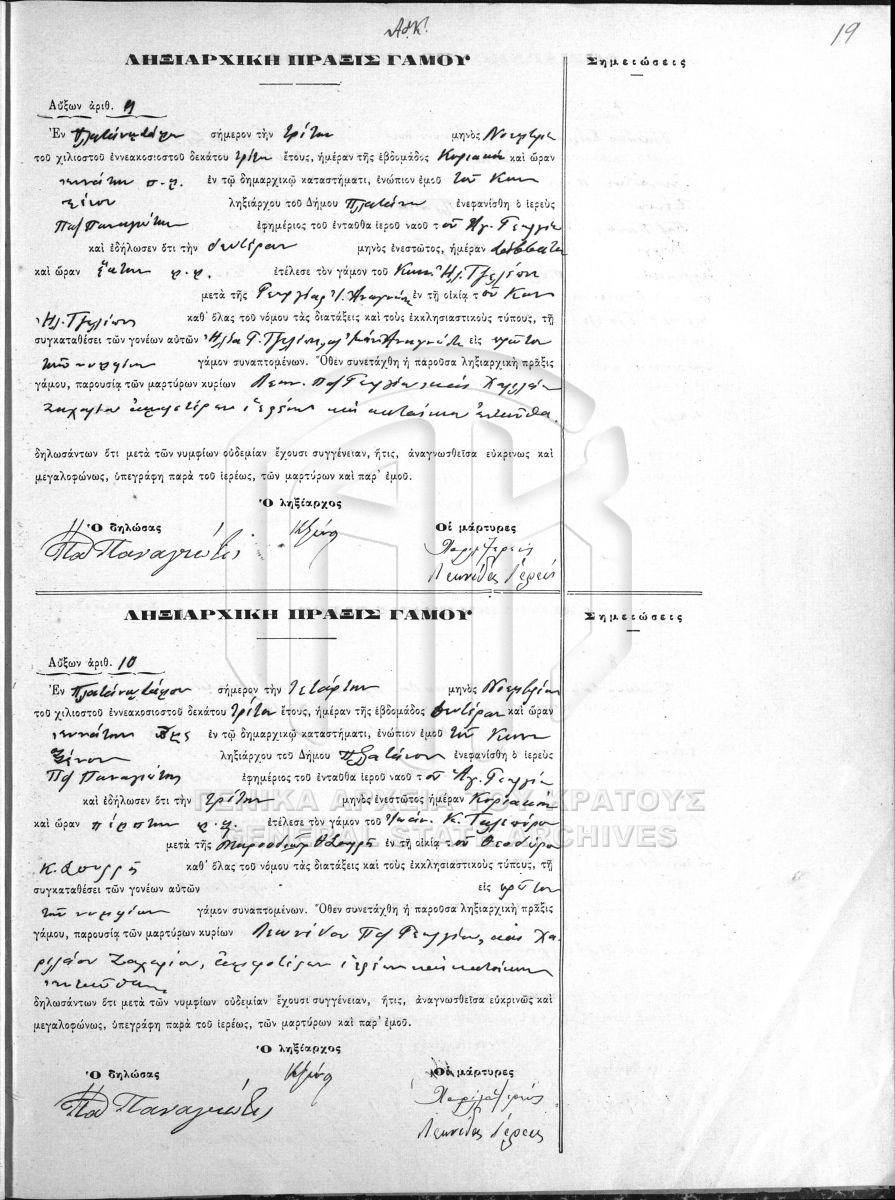 19
ΛΗΞΙΑΡΧΙΚΗ ΠΡΑΞΙΣ ΓΑΜΟΥ
Σημειώσεις
Αὔξων ἀριθ. 9
Ἐν σήμερον τὴν τρίτην μηνὸς Νοεμβρίου
τοῦ χιλιοστοῦ ἐννεακοσιοστοῦ δεκάτου τρίτου ἔτους, ἡμέραν τῆς ἑβδομάδος Κυριακὴν καὶ ὥραν
ἐννάτην π.μ. ἐν τῷ δημαρχικῷ καταστήματι, ἐνώπιον ἐμοῦ τοῦ Κων.
ληξιάρχου τοῦ Δήμου ἐνεφανίσθη ὁ ἱερεὺς
Πᾶ Παναγιώτης ἐφημέριος τοῦ ἐνταῦθα ἱεροῦ ναοῦ τοῦ Ἁγ. Γεωργίου
καὶ ἐδήλωσεν ὅτι τὴν δευτέραν μηνὸς ἐνεστῶτος, ἡμέραν Σάββατον
καὶ ὥραν ἕκτην μ.μ. ἐτέλεσε τὸν γάμον τοῦ Κων. Ἠλ.
μετὰ τῆς Γεωργίας ἐν τῇ οἰκίᾳ τοῦ Κων.
Ἠλ. καθ' ὅλας τοῦ νόμου τὰς διατάξεις καὶ τοὺς ἐκκλησιαστικοὺς τύπους, τῇ
συγκαταθέσει τῶν γονέων αὐτῶν εἰς πρῶτον
τῶν νυμφίων γάμον συναπτομένων. Ὅθεν συνετάχθη ἡ παροῦσα ληξιαρχικὴ πρᾶξις
γάμου, παρουσίᾳ τῶν μαρτύρων κυρίων Λεων. Πᾶ Γεωργίου καὶ
Ζαχαρίου ἀμφοτέρων ἱερέων καὶ κατοίκων ἐνταῦθα.
δηλωσάντων ὅτι μετὰ τῶν νυμφίων οὐδεμίαν ἔχουσι συγγένειαν, ἥτις, ἀναγνωσθεῖσα εὐκρινως καὶ
μεγαλοφώνως, ὑπεγράφη παρὰ τοῦ ἱερέως, τῶν μαρτύρων καὶ παρ' ἐμοῦ.
Ὁ ληξίαρχος
Ὁ δηλώσας
Οἱ μάρτυρες
Πα Παναγιώτης
Λεωνίδας Ἱερεύς
ΛΗΞΙΑΡΧΙΚΗ ΠΡΑΞΙΣ ΓΑΜΟΥ
Σημειώσεις
Αὔξων ἀριθ. 10
Ἐν σήμερον τὴν Τετάρτην μηνὸς Νοεμβρίου
τοῦ χιλιοστοῦ ἐννεακοσιοστοῦ δεκάτου τρίτου ἔτους, ἡμέραν τῆς ἑβδομάδος Δευτέραν καὶ ὥραν
ἐννάτην ἐν τῷ δημαρχικῷ καταστήματι, ἐνώπιον ἐμοῦ τοῦ Κων.
ληξιάρχου τοῦ Δήμου ἐνεφανίσθη ὁ ἱερεὺς
Πᾶ Παναγιώτης ἐφημέριος τοῦ ἐνταῦθα ἱεροῦ ναοῦ τοῦ Ἁγ. Γεωργίου
καὶ ἐδήλωσεν ὅτι τὴν τρίτην μηνὸς ἐνεστῶτος ἡμέραν Κυριακὴν
καὶ ὥραν πέμπτην μ.μ. ἐτέλεσε τὸν γάμον τοῦ Ἰωάν. Κ.
μετὰ τῆς ἐν τῇ οἰκίᾳ τοῦ Θεοδώρου
Κ. καθ' ὅλας τοῦ νόμου τὰς διατάξεις καὶ τοὺς ἐκκλησιαστικοὺς τύπους, τῇ
συγκαταθέσει τῶν γονέων αὐτῶν εἰς πρῶτον
τῶν νυμφίων γάμον συναπτομένων. Ὅθεν συνετάχθη ἡ παροῦσα ληξιαρχικὴ πρᾶξις
γάμου, παρουσίᾳ τῶν μαρτύρων κυρίων Λεωνίδου Πᾶ Γεωργίου, καὶ Χα-
ριλάου Ζαχαρίου, ἀμφοτέρων ἱερέων καὶ κατοίκων
ἐνταῦθα
δηλωσάντων ὅτι μετὰ τῶν νυμφίων οὐδεμίαν ἔχουσι συγγένειαν, ἥτις, ἀναγνωσθεῖσα εὐκρινῶς καὶ
μεγαλοφώνως, ὑπεγράφη παρὰ τοῦ ἱερέως, τῶν μαρτύρων καὶ παρ' ἐμοῦ.
Ὁ ληξίαρχος
Ὁ δηλώσας
Οἱ μάρτυρες
Πα Παναγιώτης
Λεωνίδας Ἱερεύς
ΓΕΝΙΚΑ ΑΡΧΕΙΑ ΤΟΥ ΚΡΑΤΟΥΣ
GENERAL STATE ARCHIVES